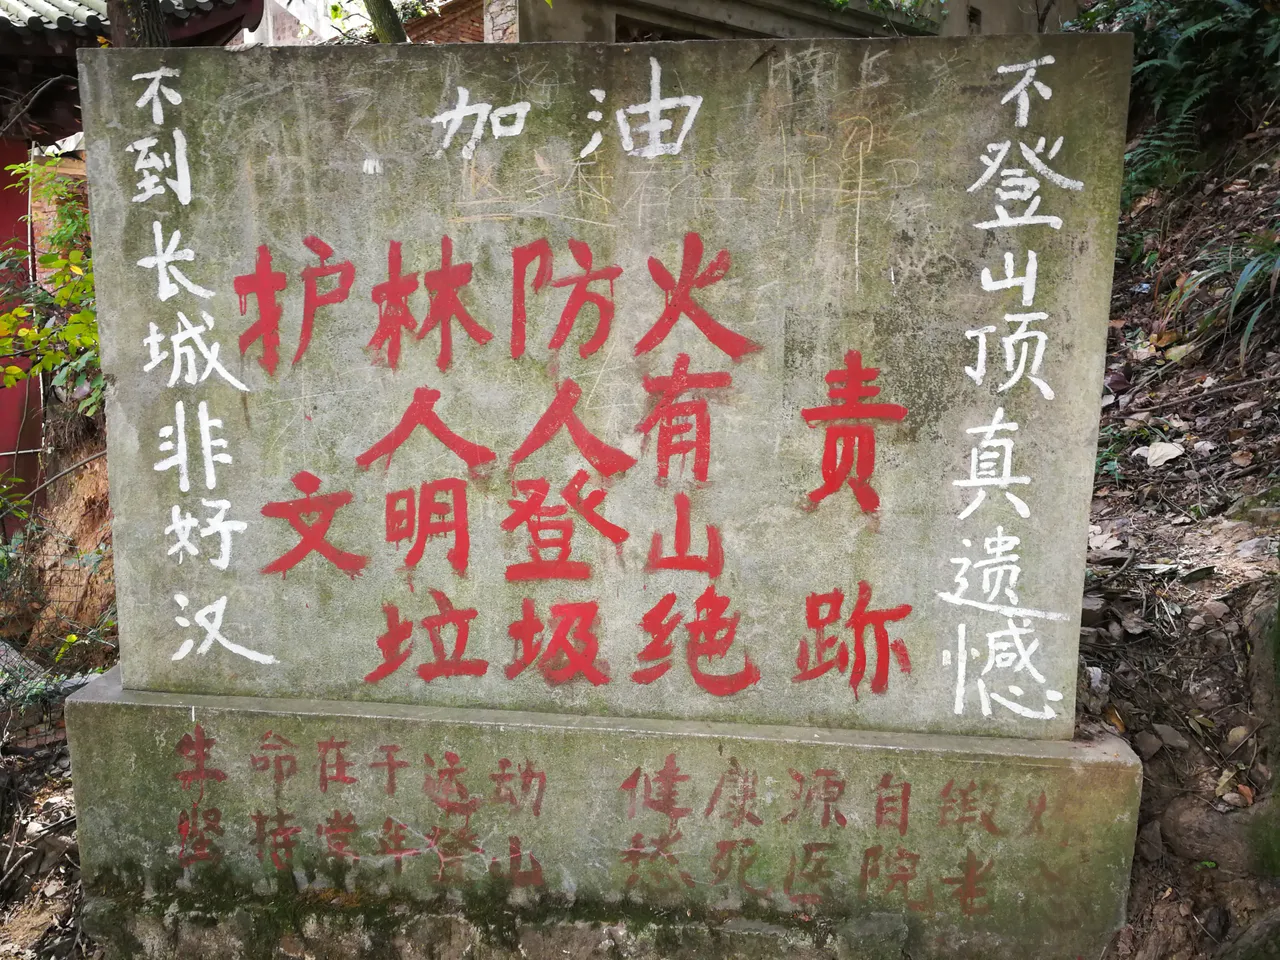 加油
不到长城非好汉
护林防火
人人有责
文明登山
垃圾绝跡
不登山顶真遗憾
生命在于运动 健康源自锻炼
坚持常年登山 愁死医院老